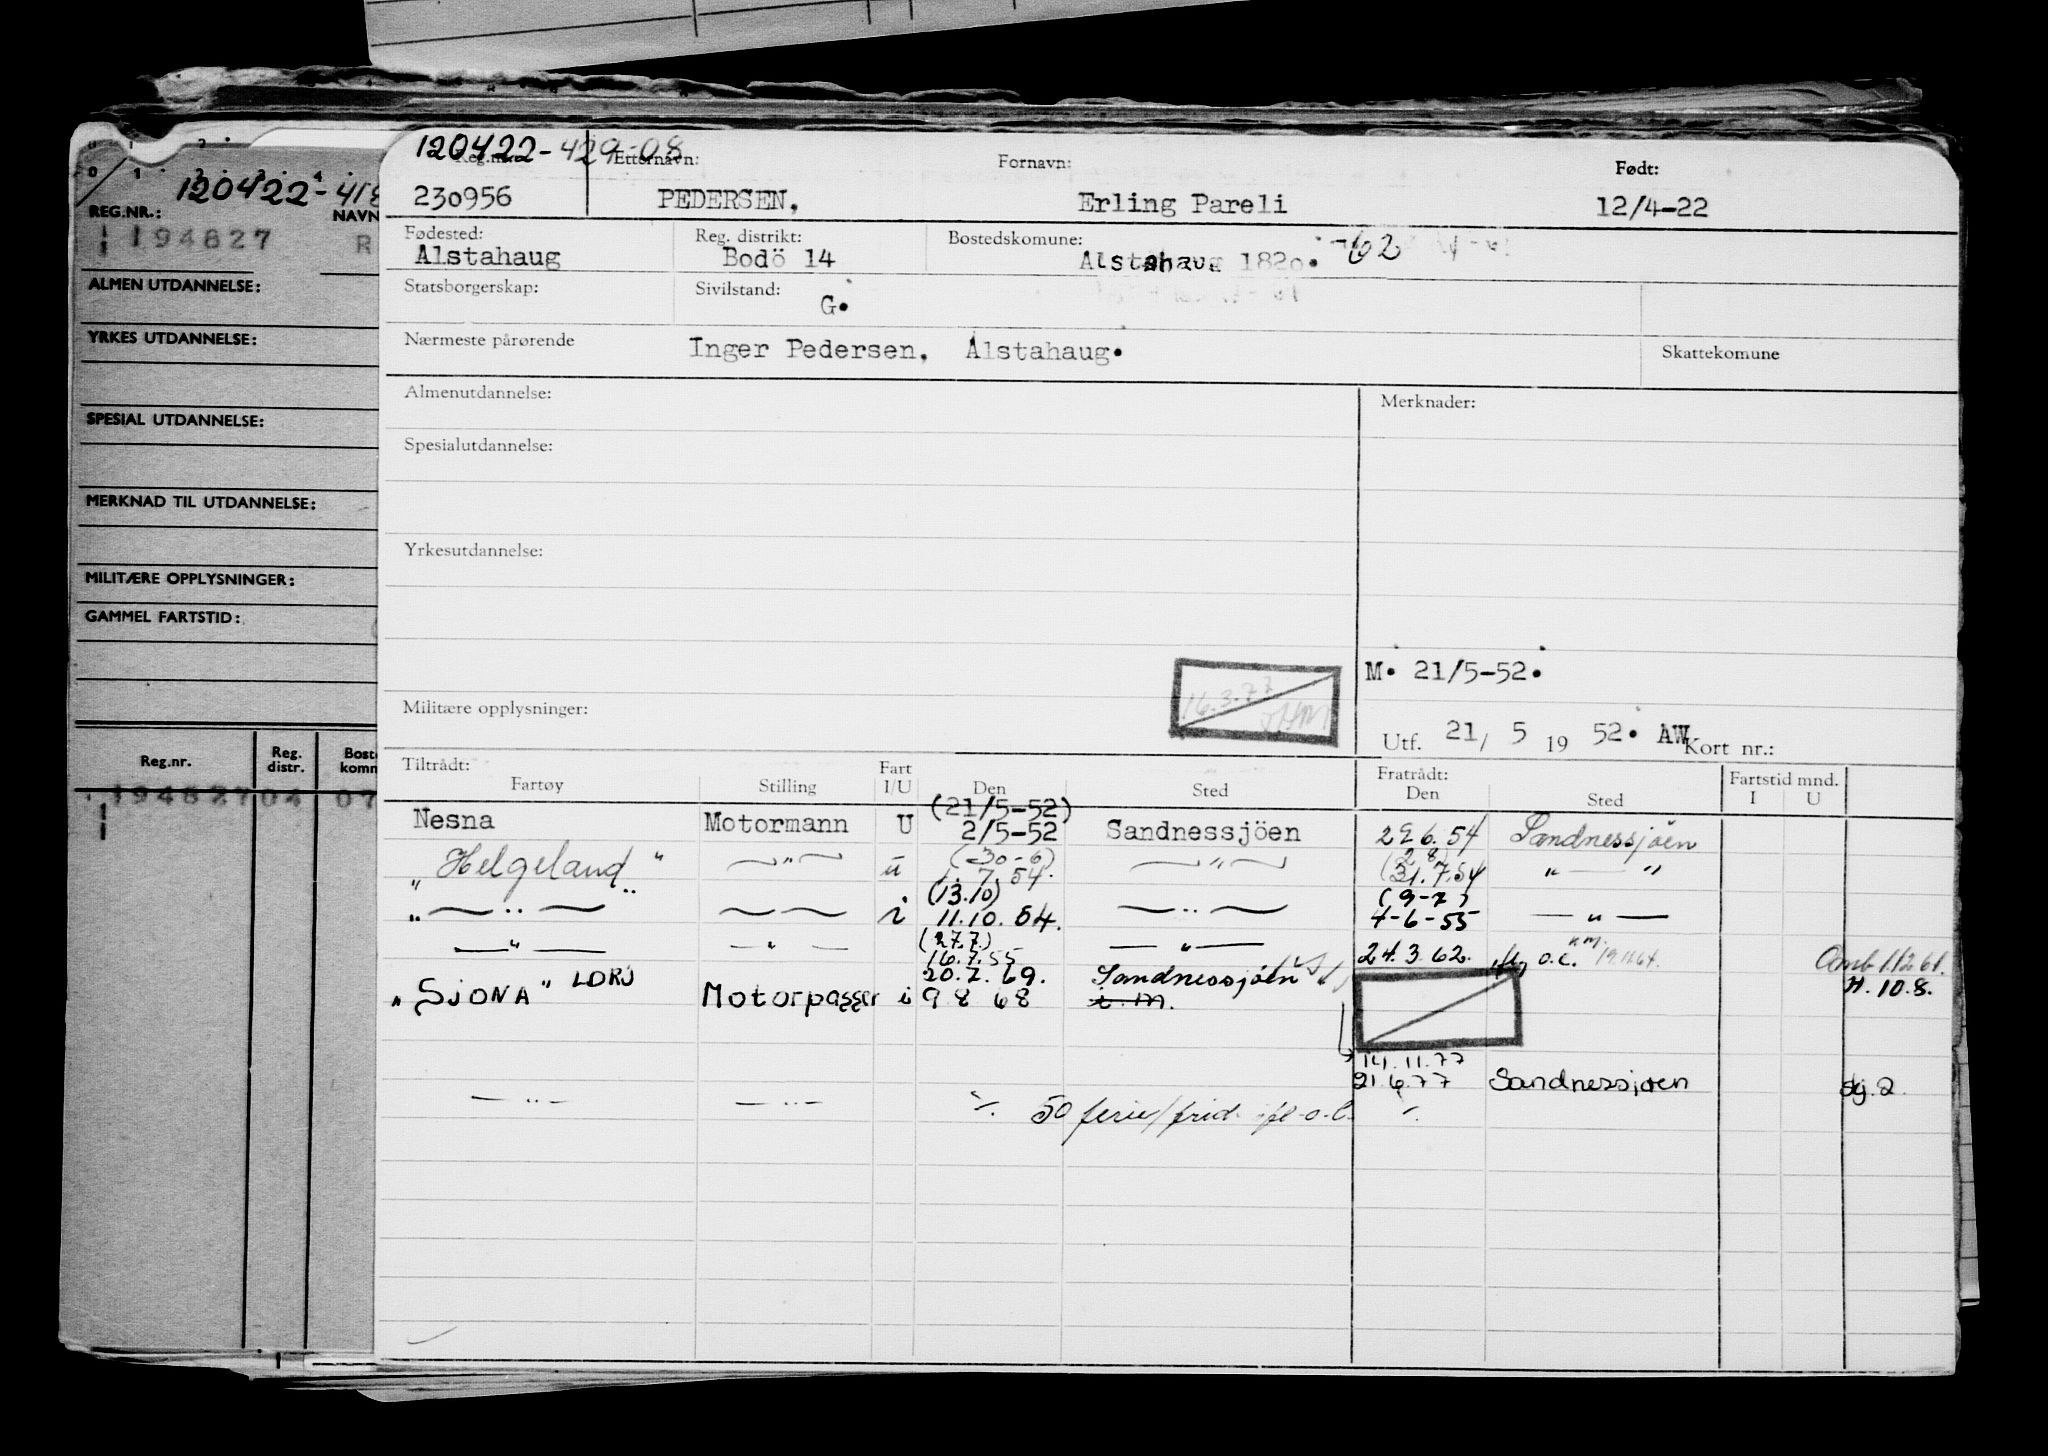 120422-429-08
Reg.nr.: Etternavn: Fornavn: Født:
230956 PEDERSEN, Erling Pareli 12/4-22
Fødested: Reg. distrikt: Bostedskomune:
Alstahaug Bodö 14 Alstahaug 1820. -62
Statsborgerskap: Sivilstand:
G.
Nærmeste pårørende Inger Pedersen, Alstahaug. Skattekomune
Almenutdannelse: Merknader:
Spesialutdannelse:
Yrkesutdannelse:
M. 21/5-52.
16.3.77
Militære opplysninger:
Utf. 21/ 5 19 52. AW Kort nr.:
Tiltrådt: Fratrådt: Fartstid mnd.
Fartøy Stilling Fart I/U Den Sted Den Sted I U
(21/5-52)
Nesna Motormann U 2/5-52 Sandnessjöen 29.6.54 Sandnessjöen
(30-6) (2.8)
"Helgeland" —"— u 1.7.54. —"— 31.7.54 "—"
(13.10) (9-7)
"—"— — — i 11.10.54. —"— 4-6-55 —"—
(27.7.)
—"— —"— 16.7.55 —"— 24.3.62. o.c. Omb 1.12.61.
20.7.69. Sandnessjöen
"SJONA" LDRJ Motorpasser i 9 8 68 t.m. H. 10.8.
14.11.77
21.6.77 Sandnessjøen sj. 2.
—"— —"— ./. 50 ferie/frid. ./.
120422-418
REG.NR.: NAVN
194827 R
ALMEN UTDANNELSE:
YRKES UTDANNELSE:
SPESIAL UTDANNELSE:
MERKNAD TIL UTDANNELSE:
MILITÆRE OPPLYSNINGER:
GAMMEL FARTSTID:
Reg.nr. Reg. distr. Boste komm
194827 04 07